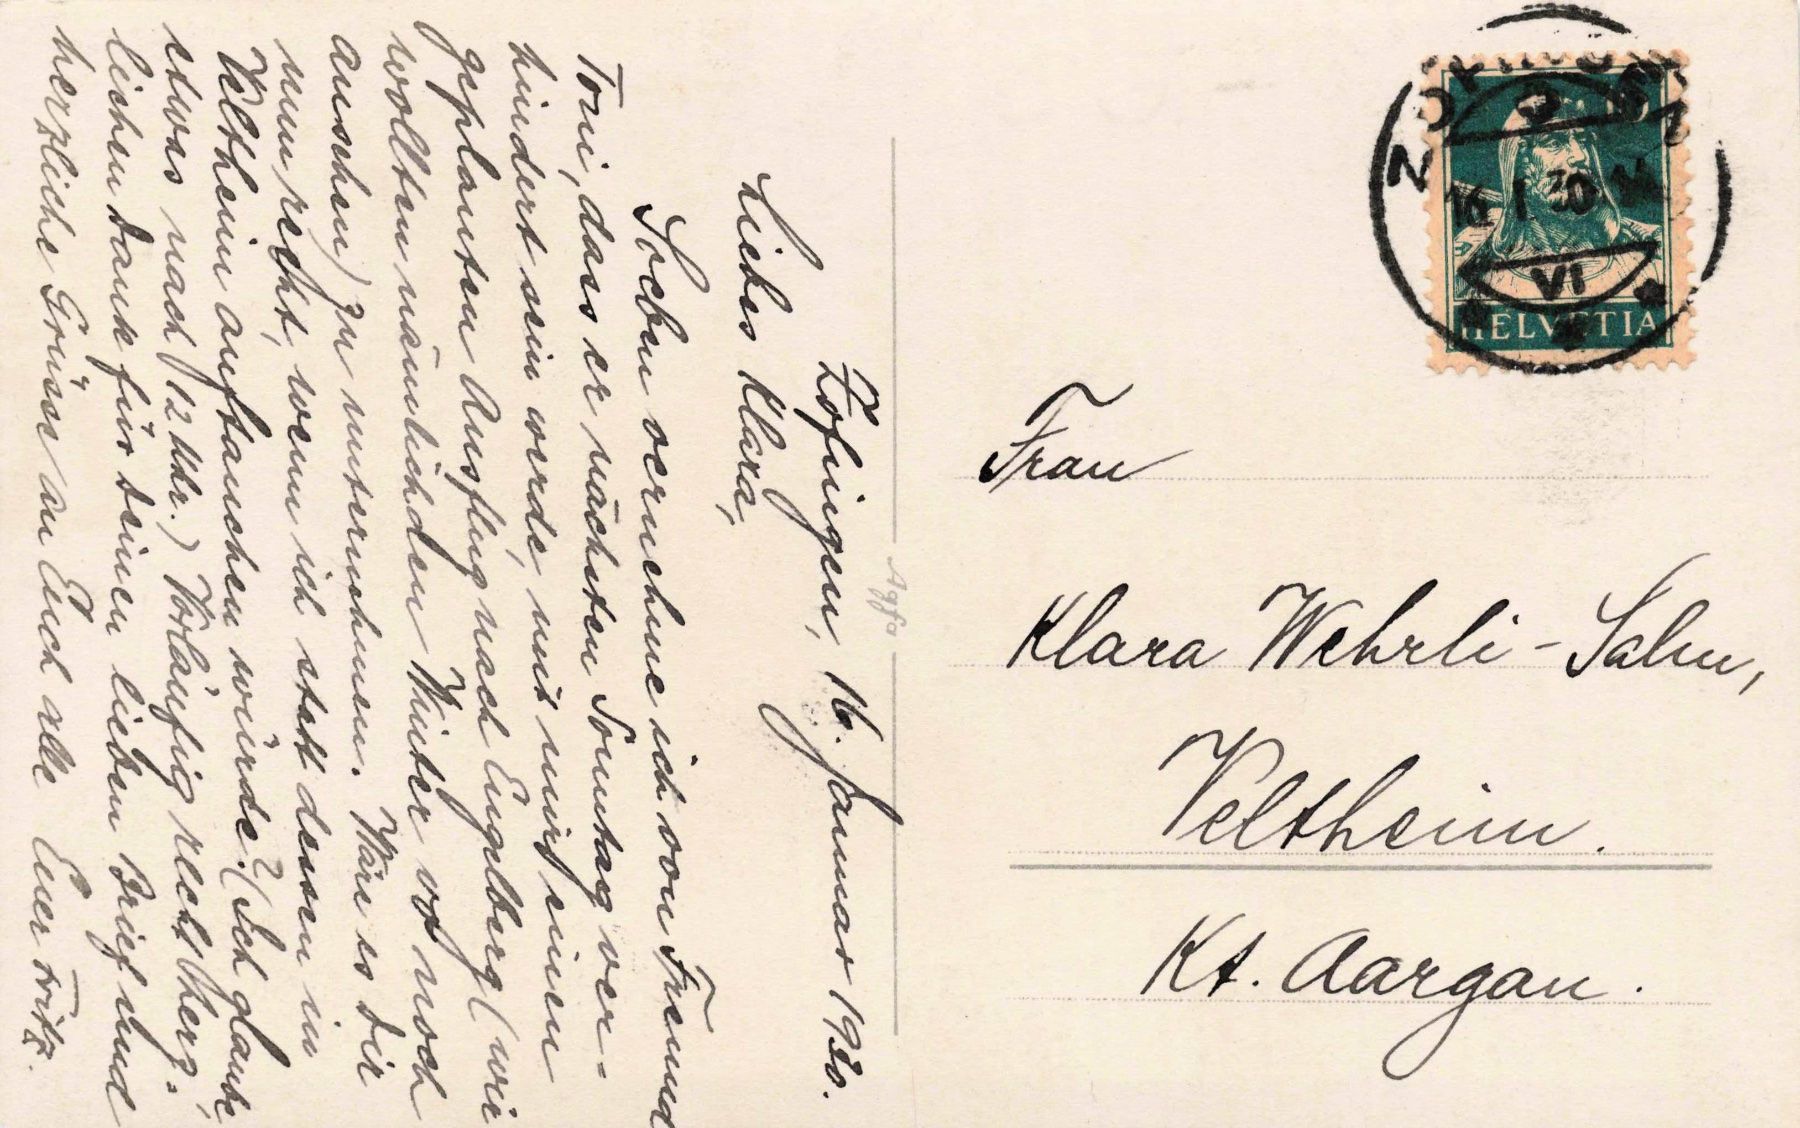 Zofingen, 16. Januar 1930.
Liebes Klara,
Soeben vernehme ich von Freund
Toni, dass er nächsten Sonntag ver-
hindert sein werde, mit mir einen
geplanten Ausflug nach Engelberg (wir
wollten nämlich den Winter dort noch
ansehen) zu unternehmen. Wäre es Dir
nun recht, wenn ich statt dessen in
Veltheim auftauchen würde? (Ich glaube,
etwas nach 12 Uhr.) Vorläufig recht herz-
lichen Dank für Deinen lieben Brief und
herzliche Grüsse an Euch alle Euer Fritz.
Agfa
ZOFINGEN
16. I. 30
VI
HELVETIA
Frau
Klara Wehrli-Salm,
Veltheim.
Kt. Aargau.